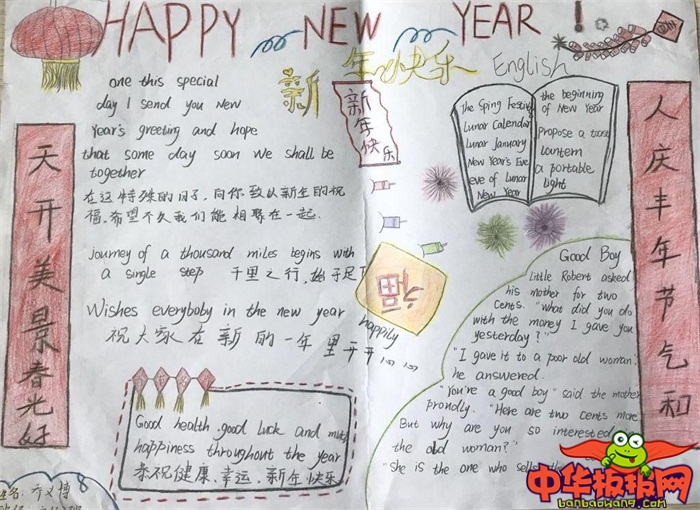 HAPPY NEW YEAR !
新年快乐 English
one this special
day I send you New
Year's greeting and hope
that some day soon we shall be
together
在这特殊的日子,向你致以新年的祝
福,希望不久我们能相聚在一起.
journey of a thousand miles begins with
a single step 千里之行,始于足下
Wishes everybody in the new year happily
祝大家在新的一年里开开心心,,,
Good health, good luck and much
happiness throughout the year
恭祝健康、幸运,新年快乐
天开美景春光好
新年快乐
福
The Sping Festival
Lunar Calendar
Lunar January
New Year's Eve
eve of lunar
New Year
the beginning
of New Year
Propose a toast
lantern
a portable
light
人庆丰年节气和
Good Boy
little Robert asked
his mother for two
cents. "What did you do
with the money I gave you
yesterday?"
"I gave it to a poor old woman."
he answered.
"You're a good boy" said the mother
proudly. "Here are two cents more
But why are you so interested
the old woman?"
"She is the one who sells the
中华板报网
banbaowang.com